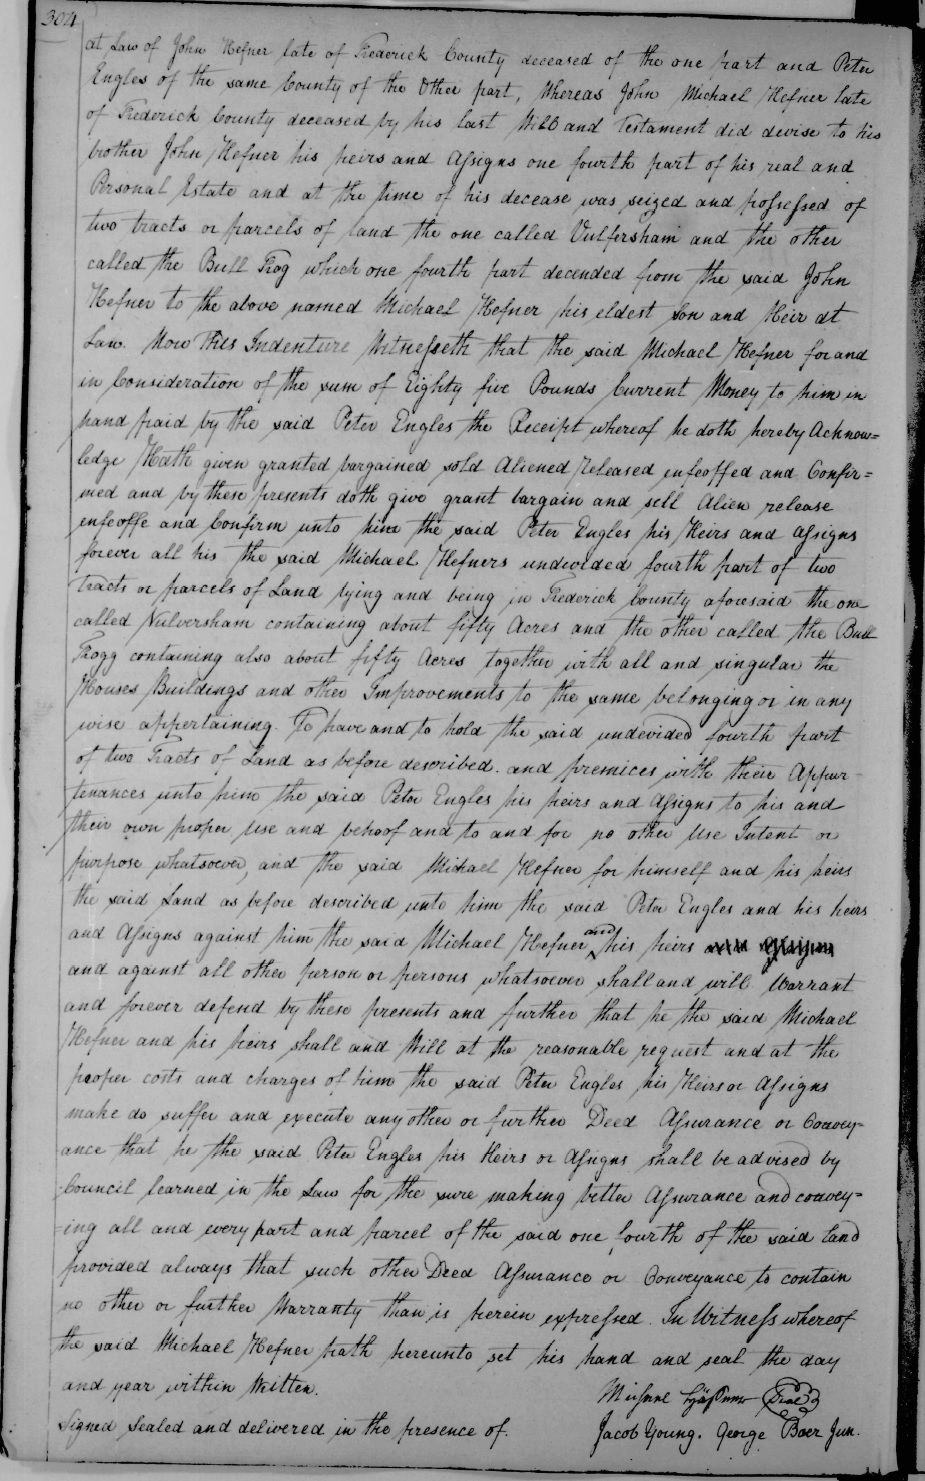 304
at Law of John Hefner late of Frederick County deceased of the one part and Peter
Engles of the same County of the Other part, Whereas John Michael Hefner late
of Frederick County deceased by his last Will and Testament did devise to his
brother John Hefner his heirs and Assigns one fourth part of his real and
Personal Estate and at the time of his decease was seized and possessed of
two tracts or parcels of land the one called Vulfersham and the other
called the Bull Frog which one fourth part decended from the said John
Hefner to the above named Michael Hefner his eldest Son and Heir at
Law. Now This Indenture Witnesseth that the said Michael Hefner for and
in Consideration of the sum of Eighty five Pounds Current Money to him in
hand paid by the said Peter Engles the Receipt whereof he doth hereby Acknow=
ledge Hath given granted bargained sold Aliened released enfeoffed and Confir=
med and by these presents doth give grant bargain and sell Alien release
enfeoffe and Confirm unto him the said Peter Engles his Heirs and Assigns
forever all his the said Michael Hefners undevided fourth part of two
Tracts or parcels of Land lying and being in Frederick County aforesaid the one
called Nulversham containing about fifty Acres and the other called the Bull
Frogg containing also about fifty Acres together with all and singular the
Houses Buildings and other Improvements to the same belonging or in any
wise appertaining. To have and to hold the said undevided fourth part
of two Tracts of Land as before described. and premices with their Appur=
tenances unto him the said Peter Engles his heirs and Assigns to his and
their own proper Use and behoof and to and for no other Use Intent or
purpose whatsoever, and the said Michael Hefner for himself and his heirs
the said Land as before described unto him the said Peter Engles and his heirs
and Assigns against him the said Michael Hefner and his heirs
and against all other person or persons whatsoever shall and will Warrant
and forever defend by these presents and further that he the said Michael
Hefner and his heirs shall and Will at the reasonable request and at the
proper costs and charges of him the said Peter Engles his Heirs or Assigns
make do suffer and execute any other or further Deed Assurance or Convey=
ance that he the said Peter Engles his Heirs or Assigns shall be advised by
Council learned in the Law for the sure making better Assurance and convey=
=ing all and every part and parcel of the said one fourth of the said land
provided always that such other Deed Assurance or Conveyance to contain
no other or further Warranty than is herein expressed. In Witness whereof
the said Michael Hefner hath hereunto set his hand and seal the day
and year within Written.
Signed Sealed and delivered in the presence of. Jacob Young. George Baer Jun.